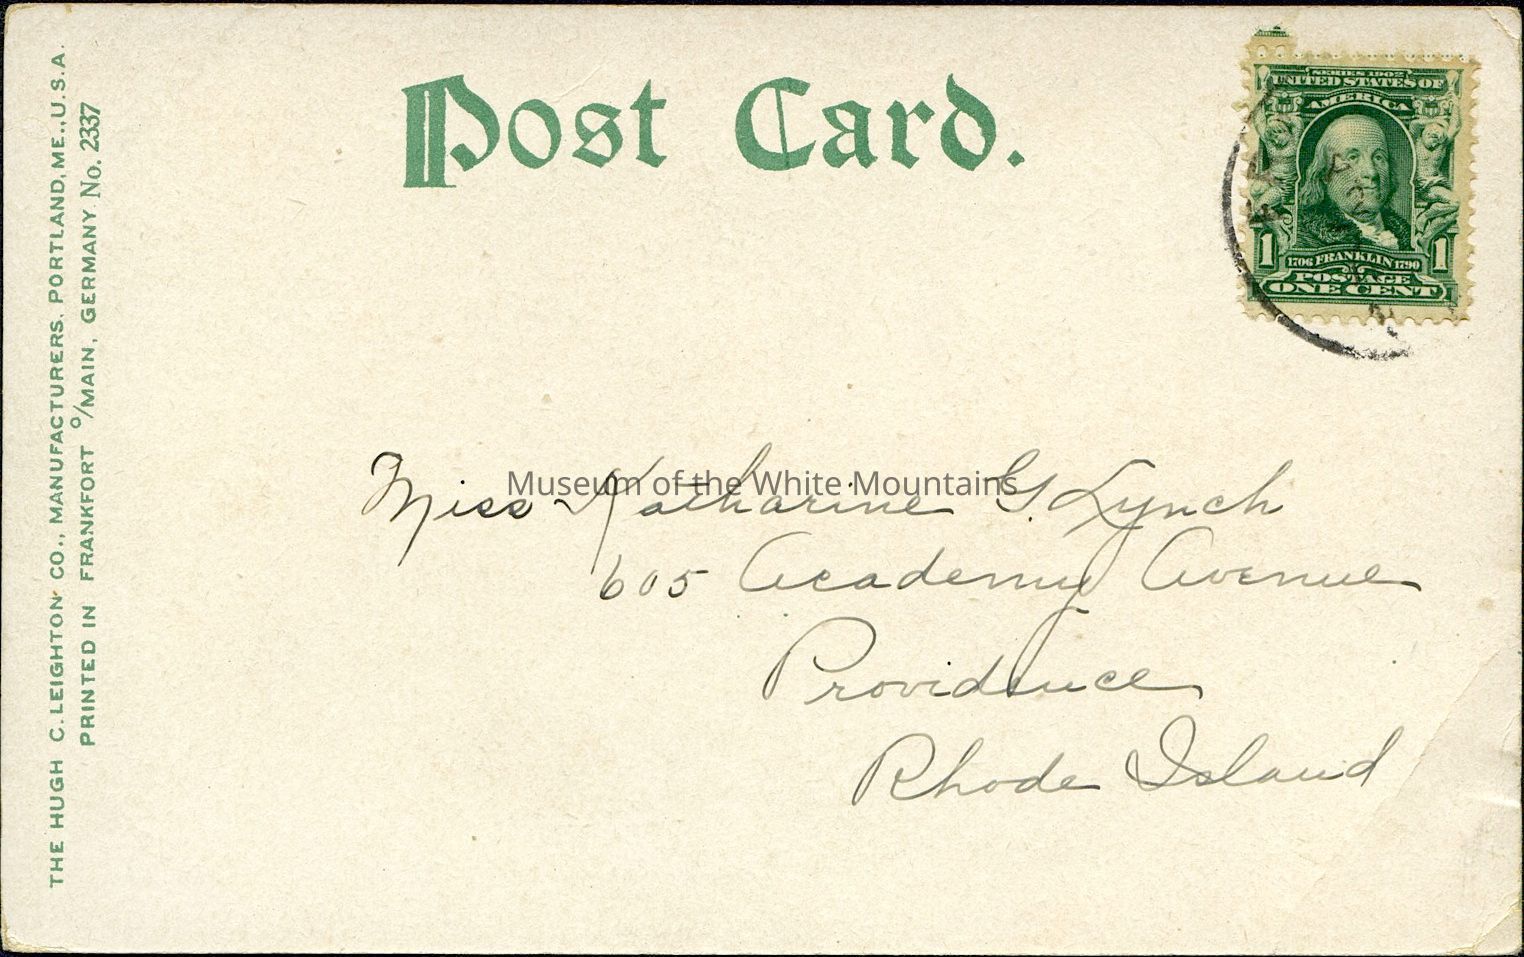 Post Card.
SERIES 1902
UNITED STATES OF
AMERICA
1706 FRANKLIN 1790
1 1
POSTAGE
ONE CENT
Museum of the White Mountains
Miss Katharine G. Lynch
605 Academy Avenue
Providence
Rhode Island
THE HUGH C. LEIGHTON CO., MANUFACTURERS, PORTLAND, ME., U.S.A.
PRINTED IN FRANKFORT o/MAIN, GERMANY. No. 2337